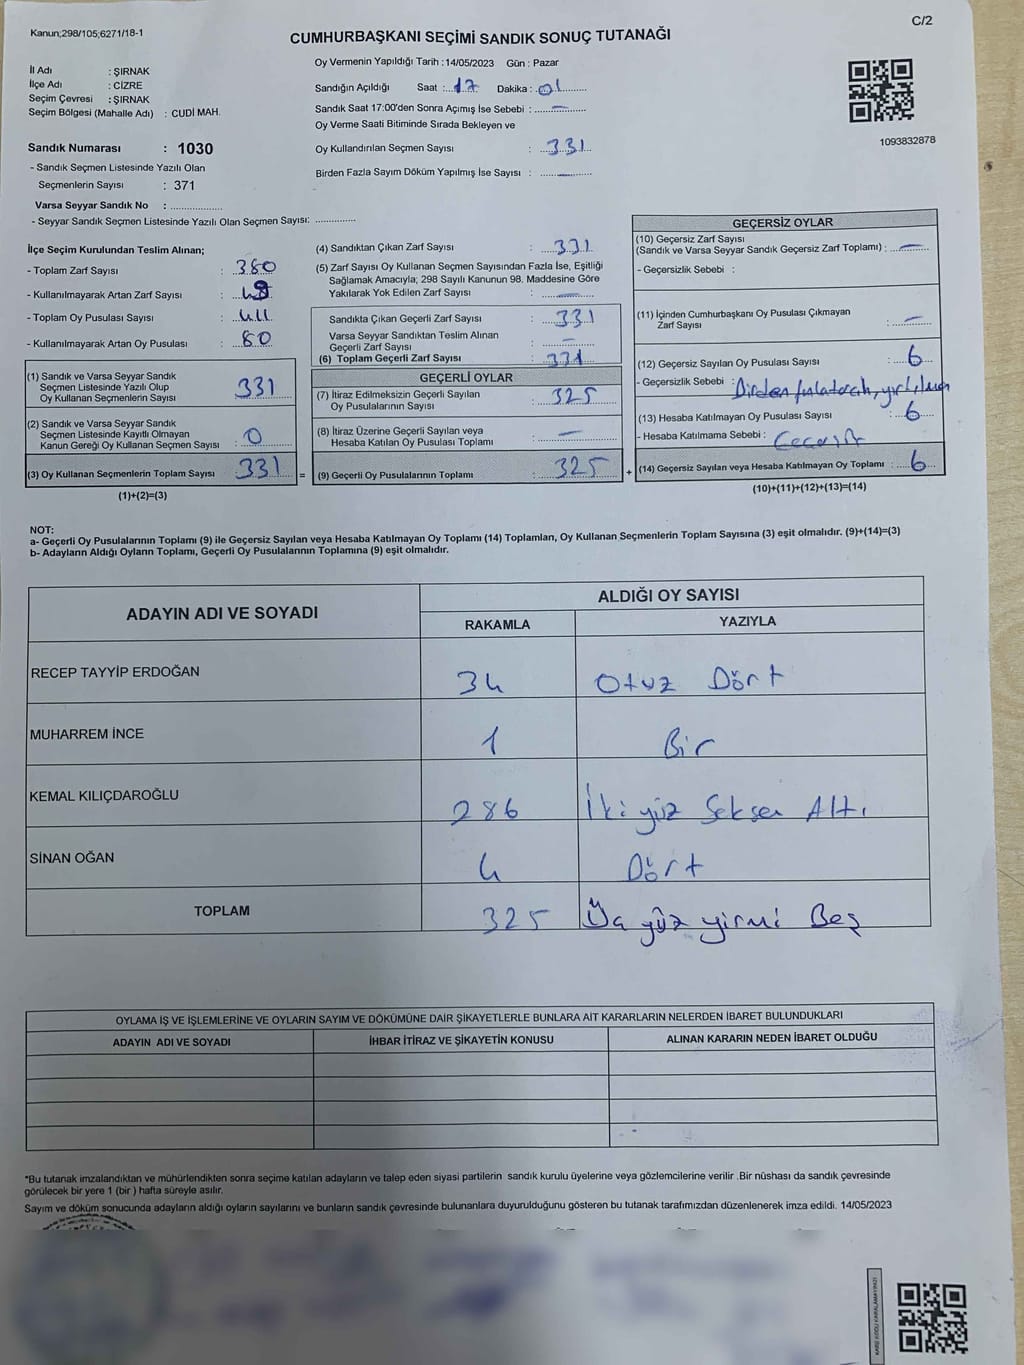 Kanun;298/105;6271/18-1
C/2
CUMHURBAŞKANI SEÇİMİ SANDIK SONUÇ TUTANAĞI
İl Adı : ŞIRNAK
İlçe Adı : CİZRE
Seçim Çevresi : ŞIRNAK
Seçim Bölgesi (Mahalle Adı) : CUDİ MAH.
Oy Vermenin Yapıldığı Tarih :14/05/2023 Gün : Pazar
Sandığın Açıldığı Saat : 17 Dakika : 01
Sandık Saat 17:00'den Sonra Açımış İse Sebebi : —
Oy Verme Saati Bitiminde Sırada Bekleyen ve
Oy Kullandırılan Seçmen Sayısı : 331
Birden Fazla Sayım Döküm Yapılmış İse Sayısı : —
1093832878
Sandık Numarası : 1030
- Sandık Seçmen Listesinde Yazılı Olan
Seçmenlerin Sayısı : 371
Varsa Seyyar Sandık No :
- Seyyar Sandık Seçmen Listesinde Yazılı Olan Seçmen Sayısı:
İlçe Seçim Kurulundan Teslim Alınan;
- Toplam Zarf Sayısı : 380
- Kullanılmayarak Artan Zarf Sayısı :
- Toplam Oy Pusulası Sayısı : 411
- Kullanılmayarak Artan Oy Pusulası : 80
(1) Sandık ve Varsa Seyyar Sandık
Seçmen Listesinde Yazılı Olup
Oy Kullanan Seçmenlerin Sayısı 331
(2) Sandık ve Varsa Seyyar Sandık
Seçmen Listesinde Kayıtlı Olmayan
Kanun Gereği Oy Kullanan Seçmen Sayısı : 0
(3) Oy Kullanan Seçmenlerin Toplam Sayısı 331 =
(1)+(2)=(3)
(4) Sandıktan Çıkan Zarf Sayısı : 331
(5) Zarf Sayısı Oy Kullanan Seçmen Sayısından Fazla İse, Eşitliği
Sağlamak Amacıyla; 298 Sayılı Kanunun 98. Maddesine Göre
Yakılarak Yok Edilen Zarf Sayısı : —
Sandıkta Çıkan Geçerli Zarf Sayısı : 331
Varsa Seyyar Sandıktan Teslim Alınan
Geçerli Zarf Sayısı : —
(6) Toplam Geçerli Zarf Sayısı : 331
GEÇERLİ OYLAR
(7) İtiraz Edilmeksizin Geçerli Sayılan
Oy Pusulalarının Sayısı : 325
(8) İtiraz Üzerine Geçerli Sayılan veya
Hesaba Katılan Oy Pusulası Toplamı : —
(9) Geçerli Oy Pusulalarının Toplamı : 325 +
GEÇERSİZ OYLAR
(10) Geçersiz Zarf Sayısı
(Sandık ve Varsa Seyyar Sandık Geçersiz Zarf Toplamı) : —
- Geçersizlik Sebebi :
(11) İçinden Cumhurbaşkanı Oy Pusulası Çıkmayan
Zarf Sayısı : —
(12) Geçersiz Sayılan Oy Pusulası Sayısı : 6
- Geçersizlik Sebebi :
(13) Hesaba Katılmayan Oy Pusulası Sayısı : 6
- Hesaba Katılmama Sebebi :
(14) Geçersiz Sayılan veya Hesaba Katılmayan Oy Toplamı : 6
(10)+(11)+(12)+(13)=(14)
NOT:
a- Geçerli Oy Pusulalarının Toplamı (9) ile Geçersiz Sayılan veya Hesaba Katılmayan Oy Toplamı (14) Toplamları, Oy Kullanan Seçmenlerin Toplam Sayısına (3) eşit olmalıdır. (9)+(14)=(3)
b- Adayların Aldığı Oyların Toplamı, Geçerli Oy Pusulalarının Toplamına (9) eşit olmalıdır.
ADAYIN ADI VE SOYADI
ALDIĞI OY SAYISI
RAKAMLA YAZIYLA
RECEP TAYYİP ERDOĞAN 34 Otuz Dört
MUHARREM İNCE 1 Bir
KEMAL KILIÇDAROĞLU 286 İki yüz Seksen Altı
SİNAN OĞAN 4 Dört
TOPLAM 325 yüz yirmi Beş
OYLAMA İŞ VE İŞLEMLERİNE VE OYLARIN SAYIM VE DÖKÜMÜNE DAİR ŞİKAYETLERLE BUNLARA AİT KARARLARIN NELERDEN İBARET BULUNDUKLARI
ADAYIN ADI VE SOYADI İHBAR İTİRAZ VE ŞİKAYETİN KONUSU ALINAN KARARIN NEDEN İBARET OLDUĞU
*Bu tutanak imzalandıktan ve mühürlendikten sonra seçime katılan adayların ve talep eden siyasi partilerin sandık kurulu üyelerine veya gözlemcilerine verilir .Bir nüshası da sandık çevresinde
görülecek bir yere 1 (bir ) hafta süreyle asılır.
Sayım ve döküm sonucunda adayların aldığı oyların sayılarını ve bunların sandık çevresinde bulunanlara duyurulduğunu gösteren bu tutanak tarafımızdan düzenlenerek imza edildi. 14/05/2023